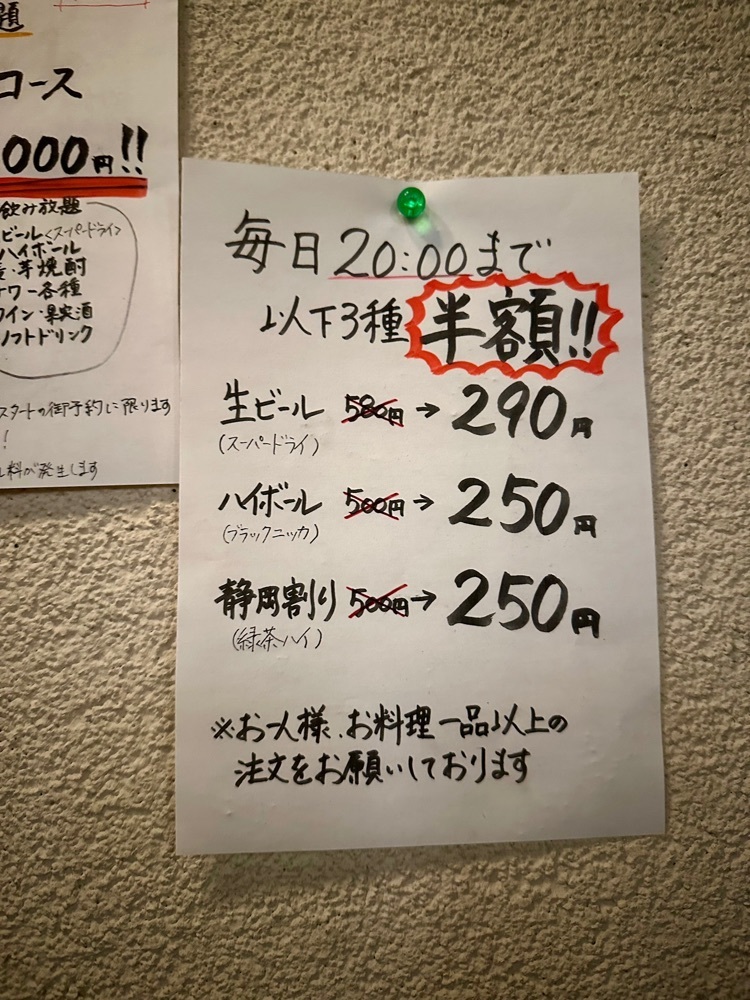 題
コース
000円!!
飲み放題
ビール〈スーパードライ〉
ハイボール
・芋焼酎
ワー各種
イン・果実酒
ソフトドリンク
スタートの御予約に限ります
!
料が発生します
毎日20:00まで
以下3種 半額!!
生ビール 580円→290円
(スーパードライ)
ハイボール 500円→250円
(ブラックニッカ)
静岡割り 500円→250円
(緑茶ハイ)
※お一人様、お料理一品以上の
注文をお願いしております